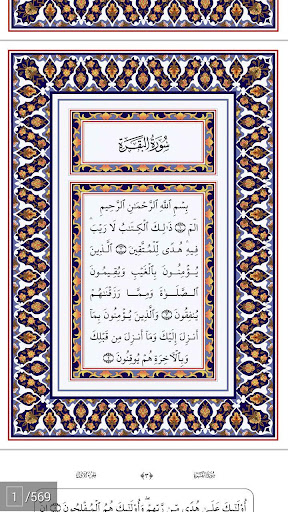 سُورَةُ البَقَرَةِ
بِسْمِ ٱللَّهِ ٱلرَّحْمَٰنِ ٱلرَّحِيمِ
الٓمٓ ۝١ ذَٰلِكَ ٱلْكِتَٰبُ لَا رَيْبَ ۛ
فِيهِ ۛ هُدًى لِّلْمُتَّقِينَ ۝٢ ٱلَّذِينَ
يُؤْمِنُونَ بِٱلْغَيْبِ وَيُقِيمُونَ
ٱلصَّلَوٰةَ وَمِمَّا رَزَقْنَٰهُمْ
يُنفِقُونَ ۝٣ وَٱلَّذِينَ يُؤْمِنُونَ بِمَآ
أُنزِلَ إِلَيْكَ وَمَآ أُنزِلَ مِن قَبْلِكَ
وَبِٱلْءَاخِرَةِ هُمْ يُوقِنُونَ ۝٤
سُورَةُ البَقَرَةِ ﴿٣﴾ الجزء الأول
أُو۟لَٰٓئِكَ عَلَىٰ هُدًى مِّن رَّبِّهِمْ ۖ وَأُو۟لَٰٓئِكَ هُمُ ٱلْمُفْلِحُونَ ۝٥ إِنَّ
1 /569